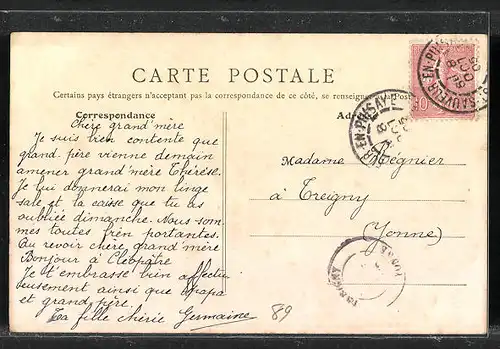 CARTE POSTALE
Certains pays étrangers n'acceptant pas la correspondance de ce côté, se renseigner Poste
Correspondance
Chère grand'mère
Je suis bien contente que
grand-père vienne demain
amener grand'mère Thérèse.
Je lui donnerai mon linge
sale et la caisse que tu as
oubliée dimanche. Nous som-
mes toutes bien portantes.
Au revoir chère grand mère
Bonjour à Cléopâtre
Je t'embrasse bien affectu-
eusement ainsi que papa
et grand père.
Ta fille chérie Germaine
89
Ad
Madame Régnier
à Treigny
(Yonne)
EN-PUISAYE
SAUVEUR-EN-PUISAYE
TREIGNY
YONNE
10